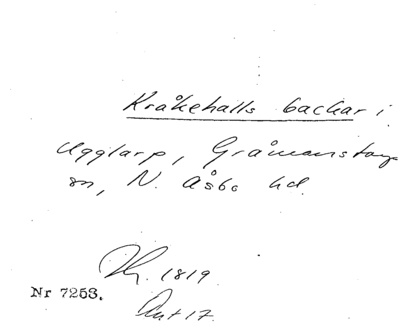 Kråkehalls backar i
Ugglarp, Gråmanstorps
sn, N. Åsbo hd.
1819
Nr 7253.
Ant 17